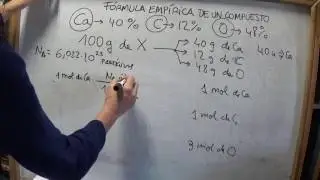 FÓRMULA EMPÍRICA DE UN COMPUESTO
Ca → 40% C → 12% O → 48%
100g de X → 40g de Ca
12g de C
48g de O
N_A = 6,022·10²³
1 mol de Ca
1 mol de Ca
1 mol de C
3 mol de O